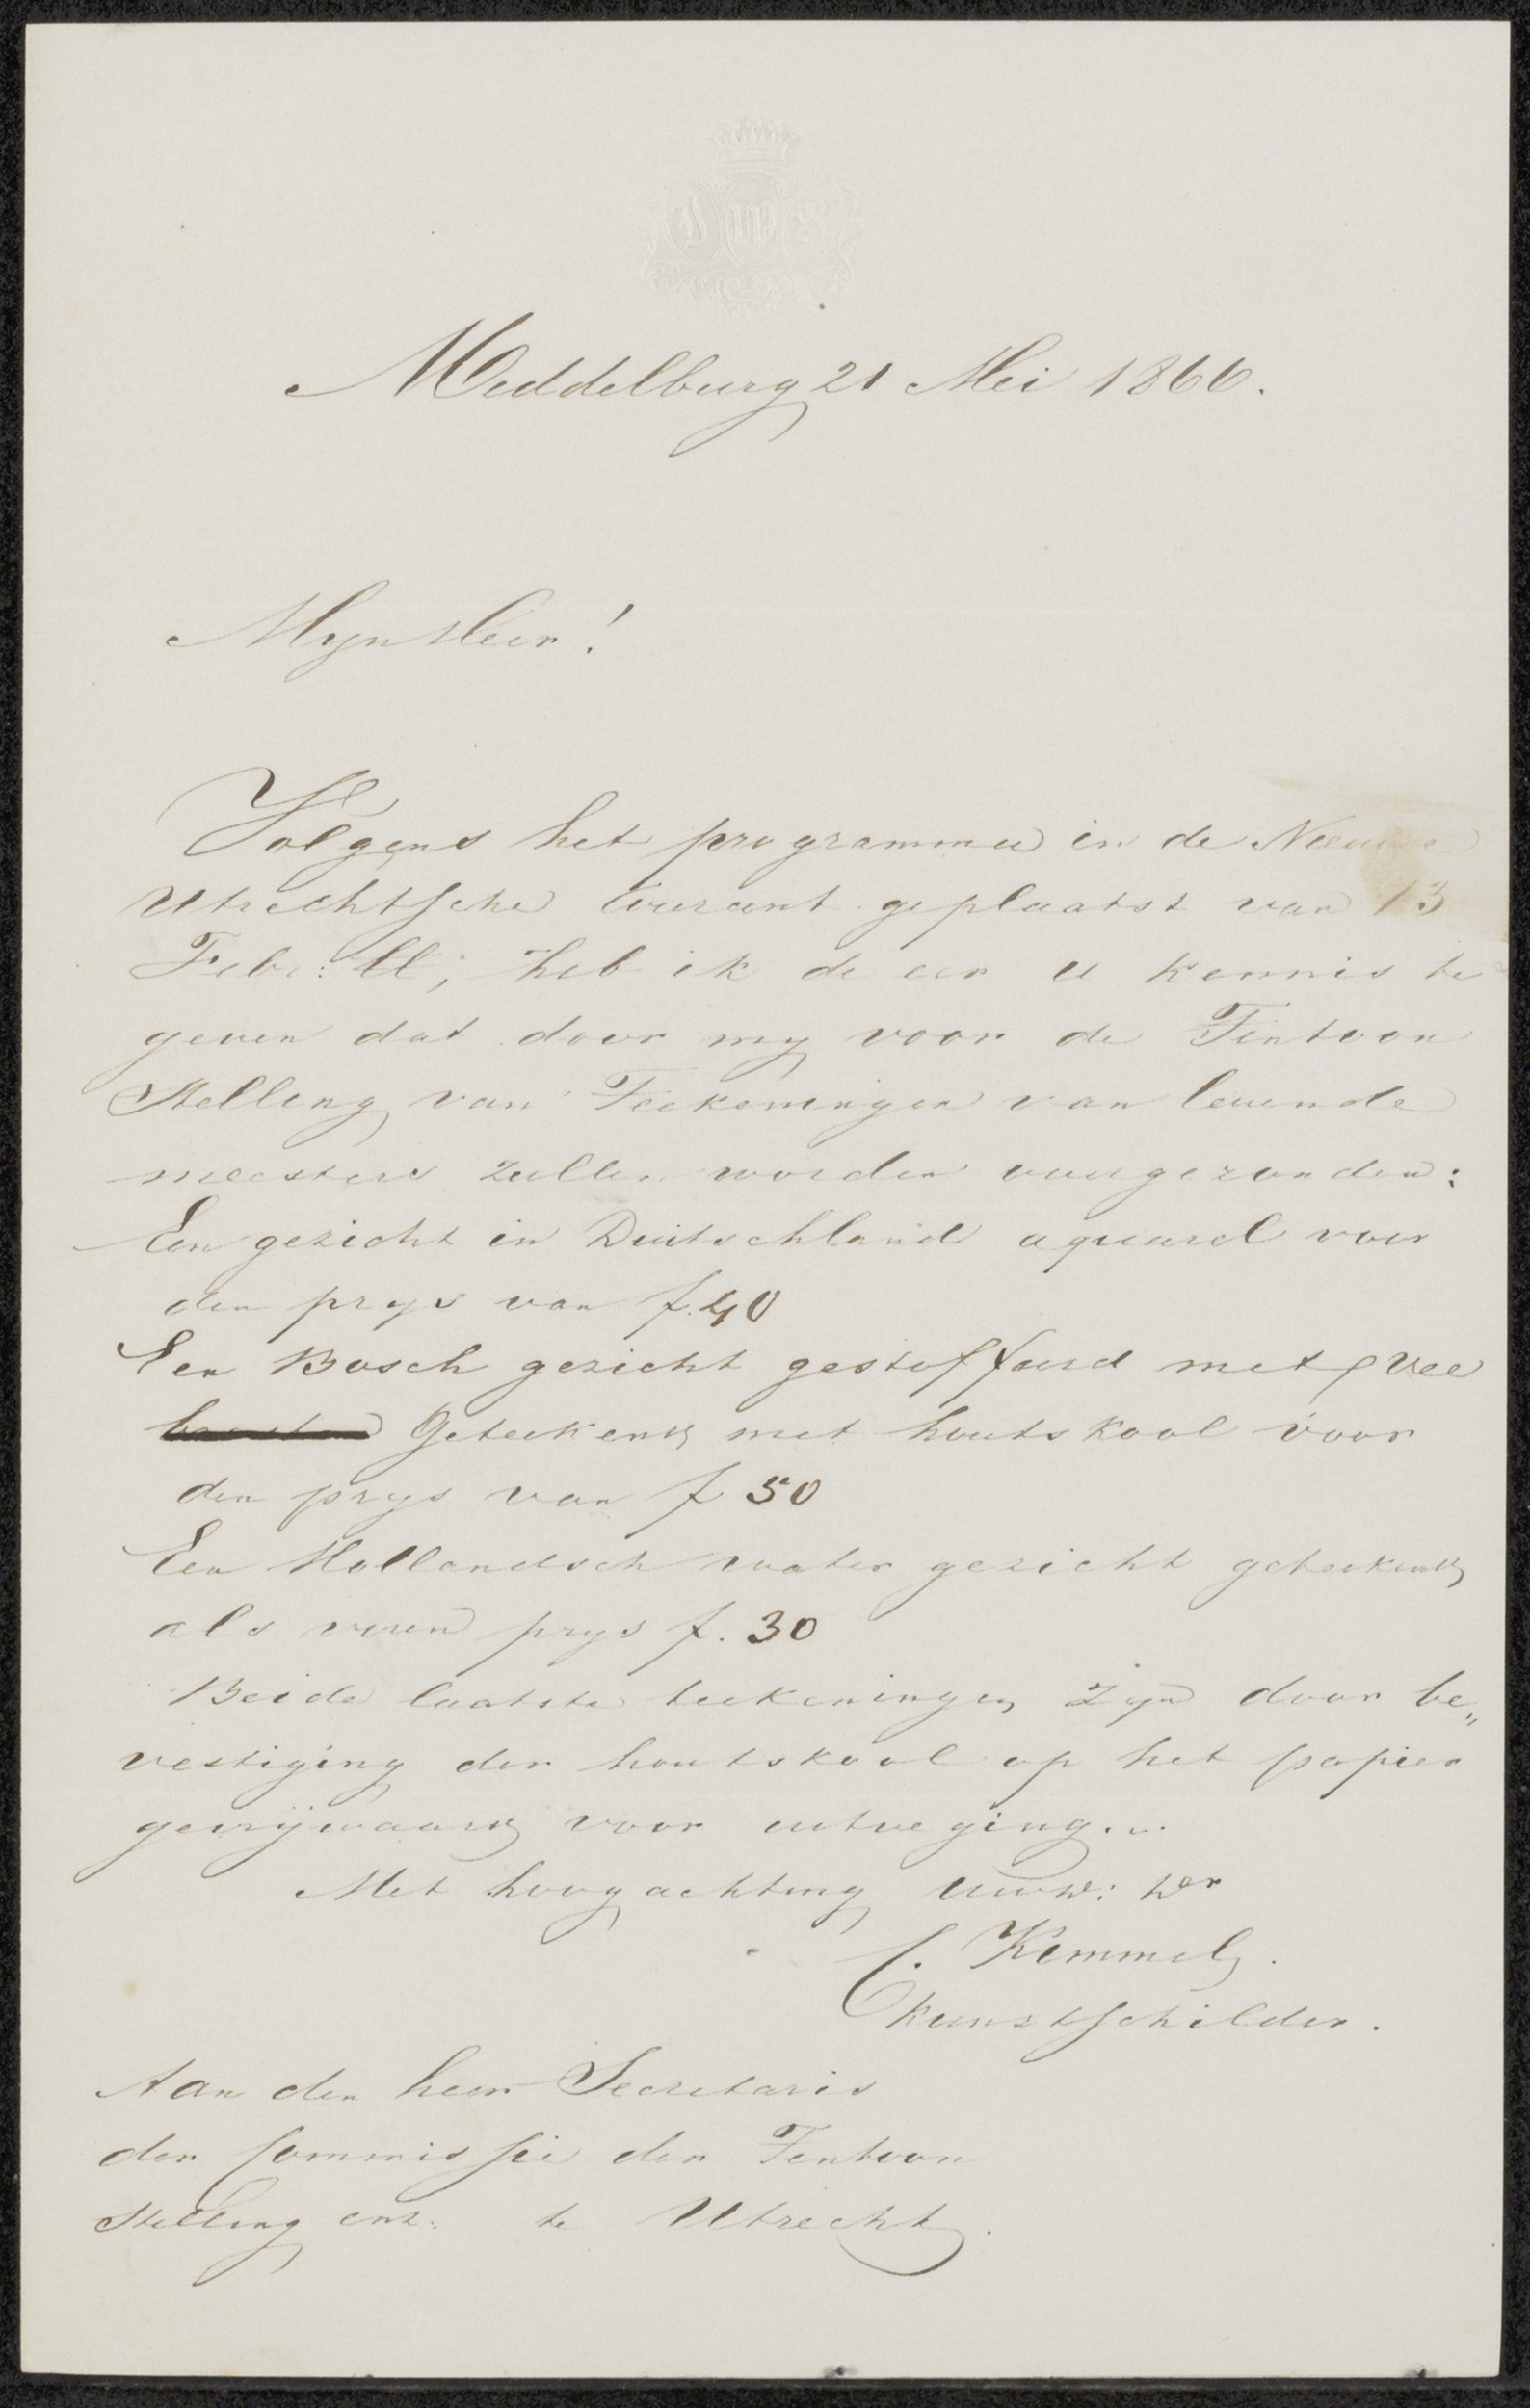 Middelburg 21 Mei 1866.
Mynheer!
Volgens het programma in de Nieuwe
Utrechtsche Courant geplaatst van 13
Febr: ll; heb ik de eer u kennis te
geven dat door my voor de Tentoon
Stelling van Teekeningen van levende
meesters zullen worden overgezonden:
Een gezicht in Duitschland aquarel voor
den prys van f. 40
Een Bosch gezicht gestoffeerd met vee
Geteekend met houtskool voor
den prys van f 50
Een Hollandsch water gezicht geteekend
als voren prys f. 30
Beide laatste teekeningen zyn door be„
vestiging der houtskool op het papier
gevrijwaard voor uitveging...
Met hoogachting uwd: der
C. Kimmel.
kunstschilder.
Aan den heer Secretaris
der Commissie der Tentoon
Stelling enz: te Utrecht.